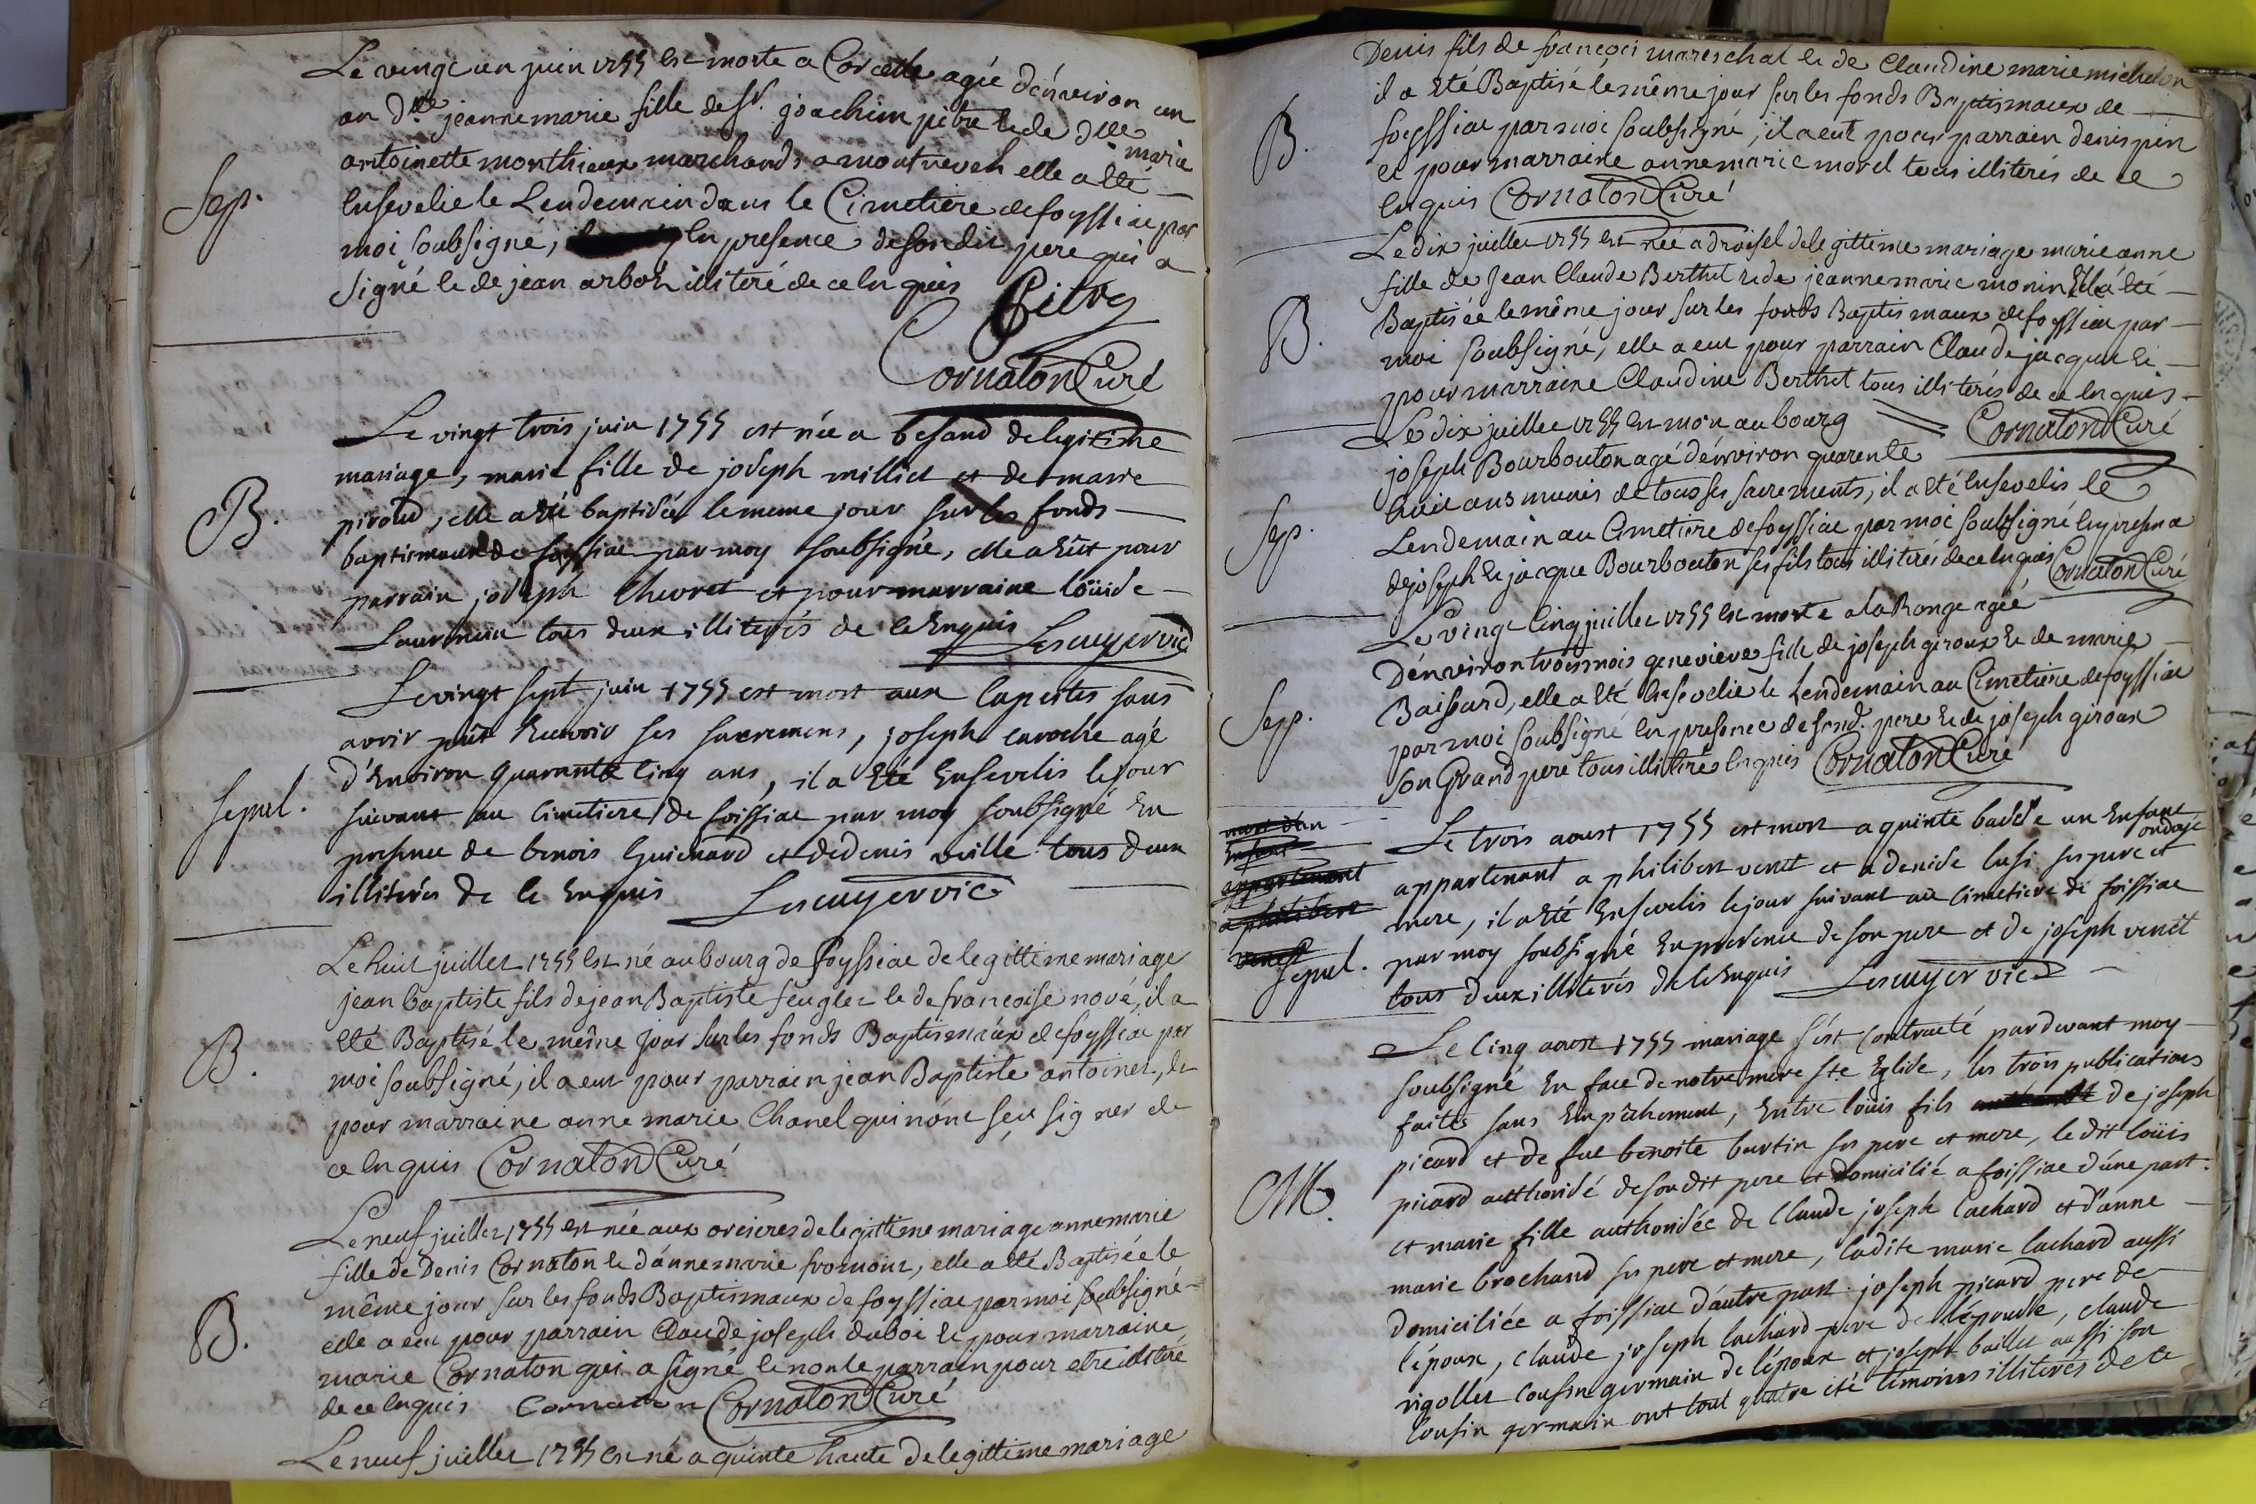 Le vingt un juin 1755 est morte a Corcelle agée d'énveiron un
an Dlle jeanne marie fille de Sr. joachim pitre et de dlle marie
antoinette monthieux marchands a montrevel elle a été
Sep.
Ensevelie le Lendemain dans le Cimetiere de foyssiac par
moi soubsigné, en presence de son dit pere qui a
signé et de jean arbon illiteré de ce enquis
Pitre
Cornaton Curé
Le vingt trois juin 1755 est née a besand de legitime
mariage, marie fille de joseph milliet et de marie
B.
piroud, elle a été baptisée le meme jour sur les fonds
baptismaux de foissiac par moy soubsigné, elle a Eüt pour
parrain joseph Chevret et pour marraine loüise
Laurencin tous deux illiterés de ce Enquis Lescuyer vic
Le vingt sept juin 1755 est mort aux lapertes sans
avoir pût Recevoir ses sacremens, joseph caroche agé
d'Environ quarante cinq ans, il a Eté Ensevelis le jour
sepul.
suivant au cimetiere de foissiac par moy soubsigné En
presence de benois Guienard et de denis veille tous deux
illiterés de ce Enquis Lescuyer vic
Le huit juillet 1755 est né au bourg de foyssiac de legittime mariage
jean baptiste fils de jean Baptiste feuglet et de francoise nové, il a
B.
Eté Baptisé le même jour sur les fonds Baptismaux de foyssiac par
moi soubsigné, il a eut pour parrain jean Baptiste antoinet, et
pour marraine anne marie Chanel qui n'ont sçu signer de
ce enquis Cornaton Curé
Le neuf juillet 1755 est née aux orcieres de legittime mariage anne marie
fille de Denis Cornaton et d'anne marie fromont, elle a eté Baptisée le
même jour sur les fonds Baptismaux de foyssiac par moi soubsigné
B.
elle a eut pour parrain Claude joseph duboi et pour marraine
marie Cornaton qui a signé et non le parrain pour etre illiteré
de ce enquis Cornaton Cornaton Curé
Le neuf juillet 1755 est né a quinte haute de legittime mariage
Denis fils de françois mareschal et de Claudine marie michelon
il a Eté Baptisé le même jour sur les fonds Baptismaux de
B.
foyssiac par moi soubsigné, il a eut pour parrain denis pin
et pour marraine anne marie morel tous illiterés de ce
enquis Cornaton Curé
Le dix juillet 1755 est née a droisel de legittime mariage marie anne
fille de Jean Claude Berthet et de jeanne marie monin Elle a été
B.
Baptisée le même jour sur les fonds Baptismaux de foyssiac par
moi soubsigné, elle a eut pour parrain Claude jacquet et
pour marraine Claudine Berthet tous illiterés de ce enquis
Cornaton Curé
Le dix juillet 1755 est mort au bourg
joseph Bourbouton agé d'énviron quarente
huit ans munis de tous ses sacrements, il a eté Ensevelis le
Sep.
Lendemain au Cimetiere de foyssiac par moi soubsigné en presence
de joseph et jacque Bourbouton ses fils tous illiterés de ce enquis Cornaton Curé
Le vingt cinq juillet 1755 est morte a la Range agée
D'énviron trois mois genevieve fille de joseph giroux et de marie
Sep.
Baissard, elle a été Ensevelie le Lendemain au Cimetiere de foyssiac
par moi soubsigné en presence de sond. pere et de joseph giroux
son Grand pere tous illiterés enquis Cornaton Curé
mort d'un
Enfant
appartenant
a philibert
venet
Le trois aoust 1755 est mort a quinte basse un Enfant
ondoyé
appartenant a philibert venet et a denise lusi ses pere et
mere, il a Eté Ensevelis le jour suivant au cimetiere de foissiac
sepul.
par moy soubsigné En presence de son pere et de joseph venet
tous deux illiterés de ce Enquis Lescuyer vic
Le Cinq aoust 1755 mariage s'est contracté pardevant moy
soubsigné En face de notre mere ste Eglise, les trois publications
faites sans Empechement, Entre loüis fils de joseph
picard et de fue benoite burtin ses pere et mere, le dit loüis
M.
picard authorisé de son dit pere et domicilié a foissiac d'une part.
et marie fille authorisée de Claude joseph lachard et d'anne
marie brochand ses pere et mere, ladite marie lachard aussi
domiciliée a foissiac d'autre part. joseph picard pere de
l'époux, claude joseph lachard pere de l'épouse, claude
rigollet cousin germain de l'époux et joseph baillet aussi son
cousin germain ont tout quatre eté témoins illiterés de ce